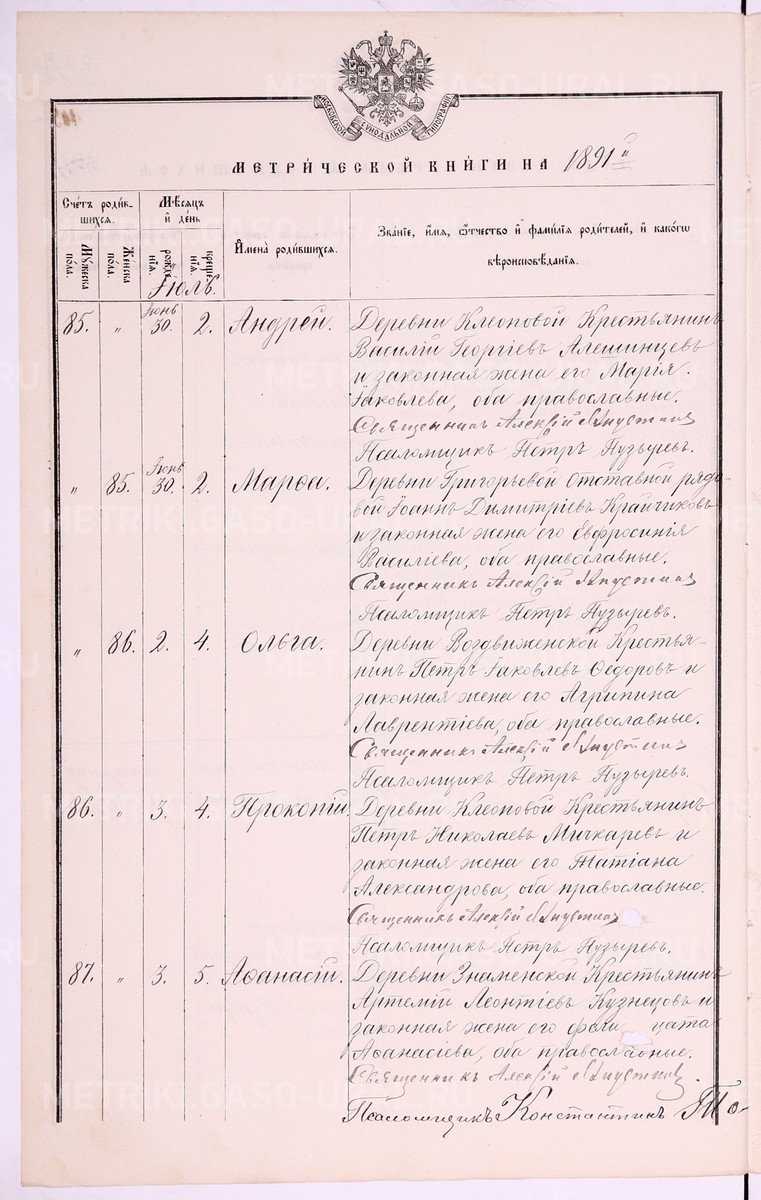 МОСКОВСКОЙ СѴНОДАЛЬНОЙ ТИПОГРАФІИ
МЕТРИ́ЧЕСКОЙ КНИ́ГИ НА 1891 й
Сче́тъ роди́в-
шихся.
Мѣ́сяцъ
и҆ де́нь
Му́жеска
по́ла.
Же́нска
по́ла.
рожде́-
нїя.
креще́-
нїя.
И҆мена̀ роди́вшихся.
Зва́нїе, и҆́мя, ѻ҆́тчество и҆ фами́лїя роди́телей, и҆ како́гѡ
вѣроисповѣ́данїя.
Іюль.
85. " Іюнь 30. 2. Андрей. Деревни Клеоповой Крестьянинъ
Василій Георгіевъ Алешинцевъ
и законная жена его Марія
Іаковлева, оба православные.
Священникъ Алексій
Псаломщикъ Петръ Пузыревъ.
" 85. Іюнь 30. 2. Марѳа. Деревни Григорьевой Отставной рядо-
вой Іоаннъ Димитріевъ Крайчиковъ
и законная жена его Евфросинія
Василіева, оба православные.
Священникъ Алексій
Псаломщикъ Петръ Пузыревъ.
" 86. 2. 4. Ольга. Деревни Воздвиженской Крестья-
нинъ Петръ Іаковлевъ Ѳедоровъ и
законная жена его Агрипина
Лаврентіева, оба православные.
Священникъ Алексій
Псаломщикъ Петръ Пузыревъ.
86. " 3. 4. Прокопій. Деревни Клеоповой Крестьянинъ
Петръ Николаевъ Мичкаревъ и
законная жена его Татіана
Александрова, оба православные.
Священникъ Алексій
Псаломщикъ Петръ Пузыревъ.
87. " 3. 5. Аѳанасій. Деревни Знаменской Крестьянинъ
Артемій Леонтіевъ Кузнецовъ и
законная жена его Фели цата
Аѳанасіева, оба православные.
Священникъ Алексій
Псаломщикъ Константинъ То-